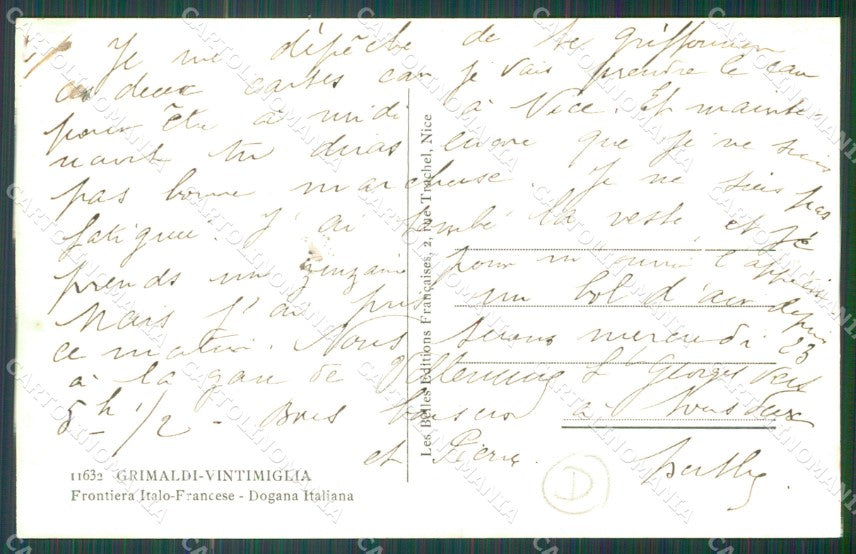 Je me dépêche de te griffonner
ces deux cartes car je vais prendre le car
pour être à midi à Nice. Et mainte-
nant tu diras encore que je ne suis
pas bonne marcheuse. Je ne suis pas
fatiguée. J'ai tombé la veste, et je
prends un pour m'ouvrir l'appétit
Mais j'ai pris un bol d'air depuis
ce matin. Nous serons mercredi 23
à la gare de Villeneuve St Georges vers
5h 1/2 - Bons baisers à vous deux
et Pierre
11632 GRIMALDI-VINTIMIGLIA
Frontiera Italo-Francese - Dogana Italiana
Les Belles Editions Françaises, 2, rue Trachel, Nice
D
CARTOLINOMANIA